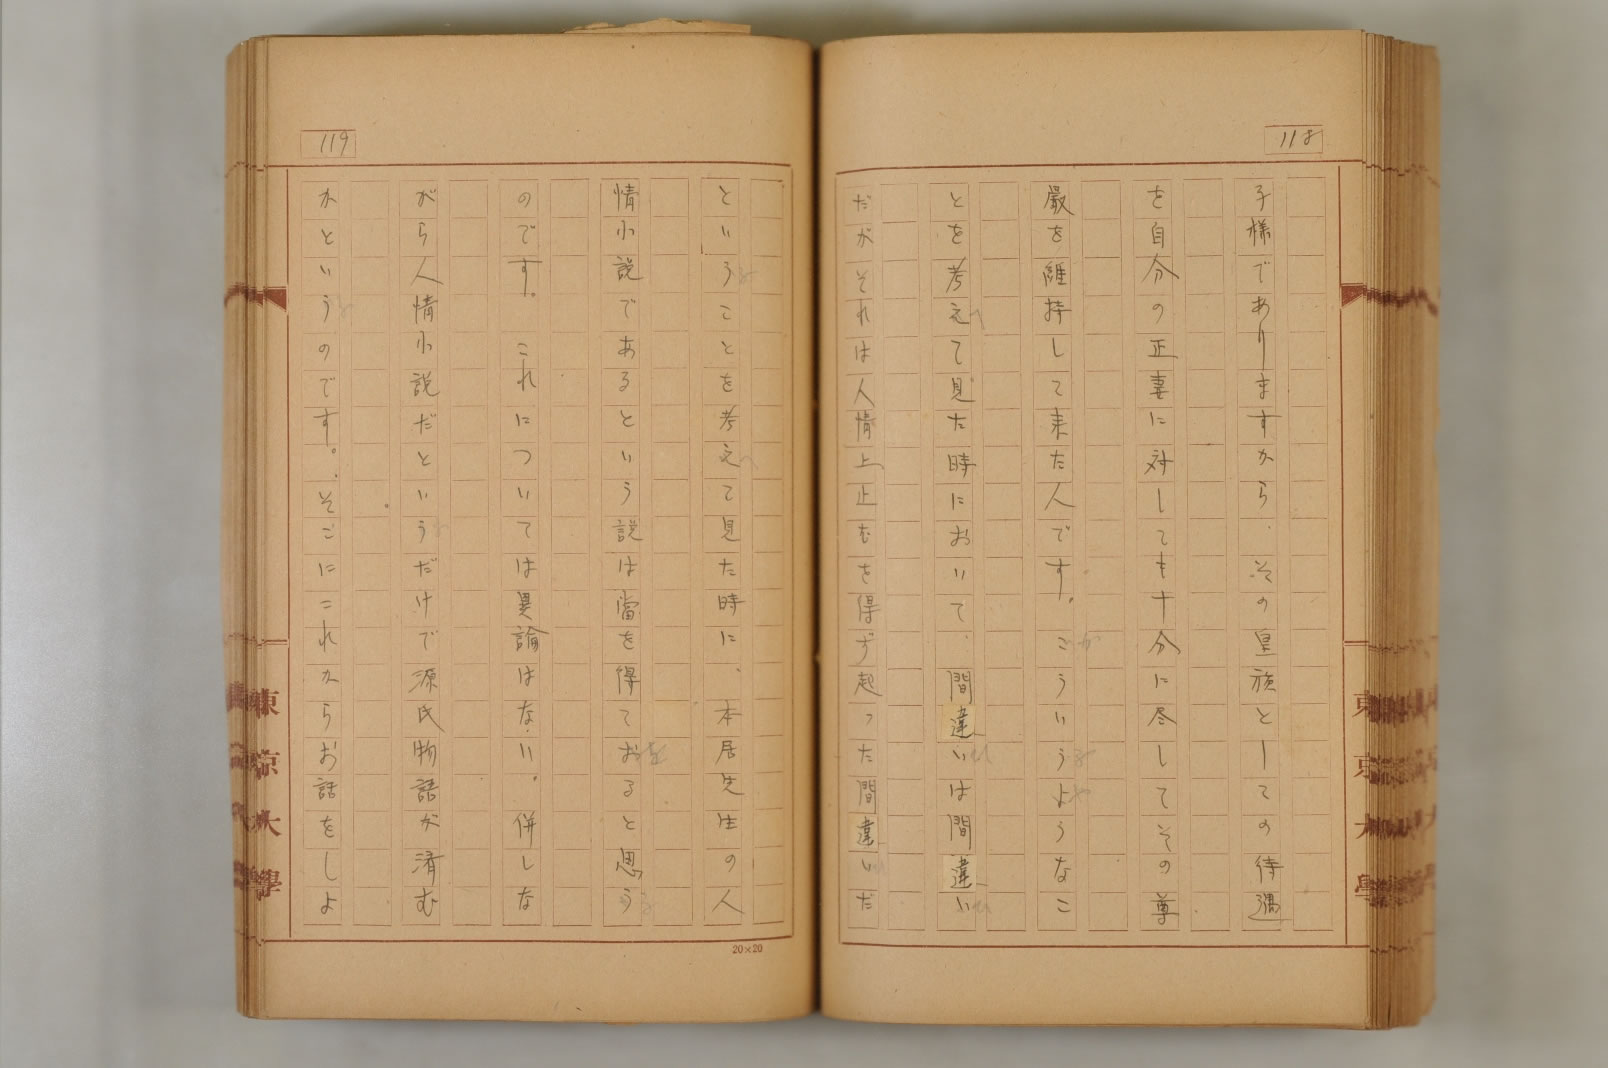 118
子様でありますから、その皇族としての待遇
を自分の正妻に対しても十分に尽してその尊
厳を維持して来た人です。こういうようなこ
とを考えて見た時において 間違いは間違い
だがそれは人情上止むを得ず起った間違いだ
119
ということを考えて見た時に、本居先生の人
情小説であるという説は当を得ておると思う
のです。 これについては異論はない。併しな
がら人情小説だというだけで源氏物語が済む
かというのです。そこにこれからお話をしよ
20×20
東京大學